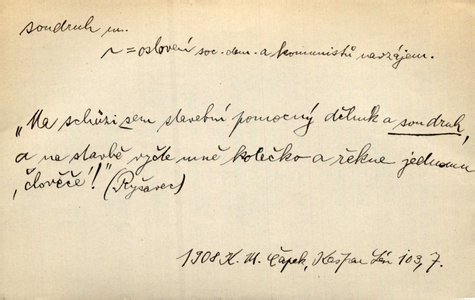 soudruh m.
~ = oslovení soc. dem. a komunistů navzájem.
„Na schůzi sem stavební pomocný dělník a soudruh,
a na stavbě vyčte mně kolečko a řekne jednomu
‚člověče!‘“ (Ryšavec)
1908 K. M. Čapek, Kašpar Lén 103, 7.